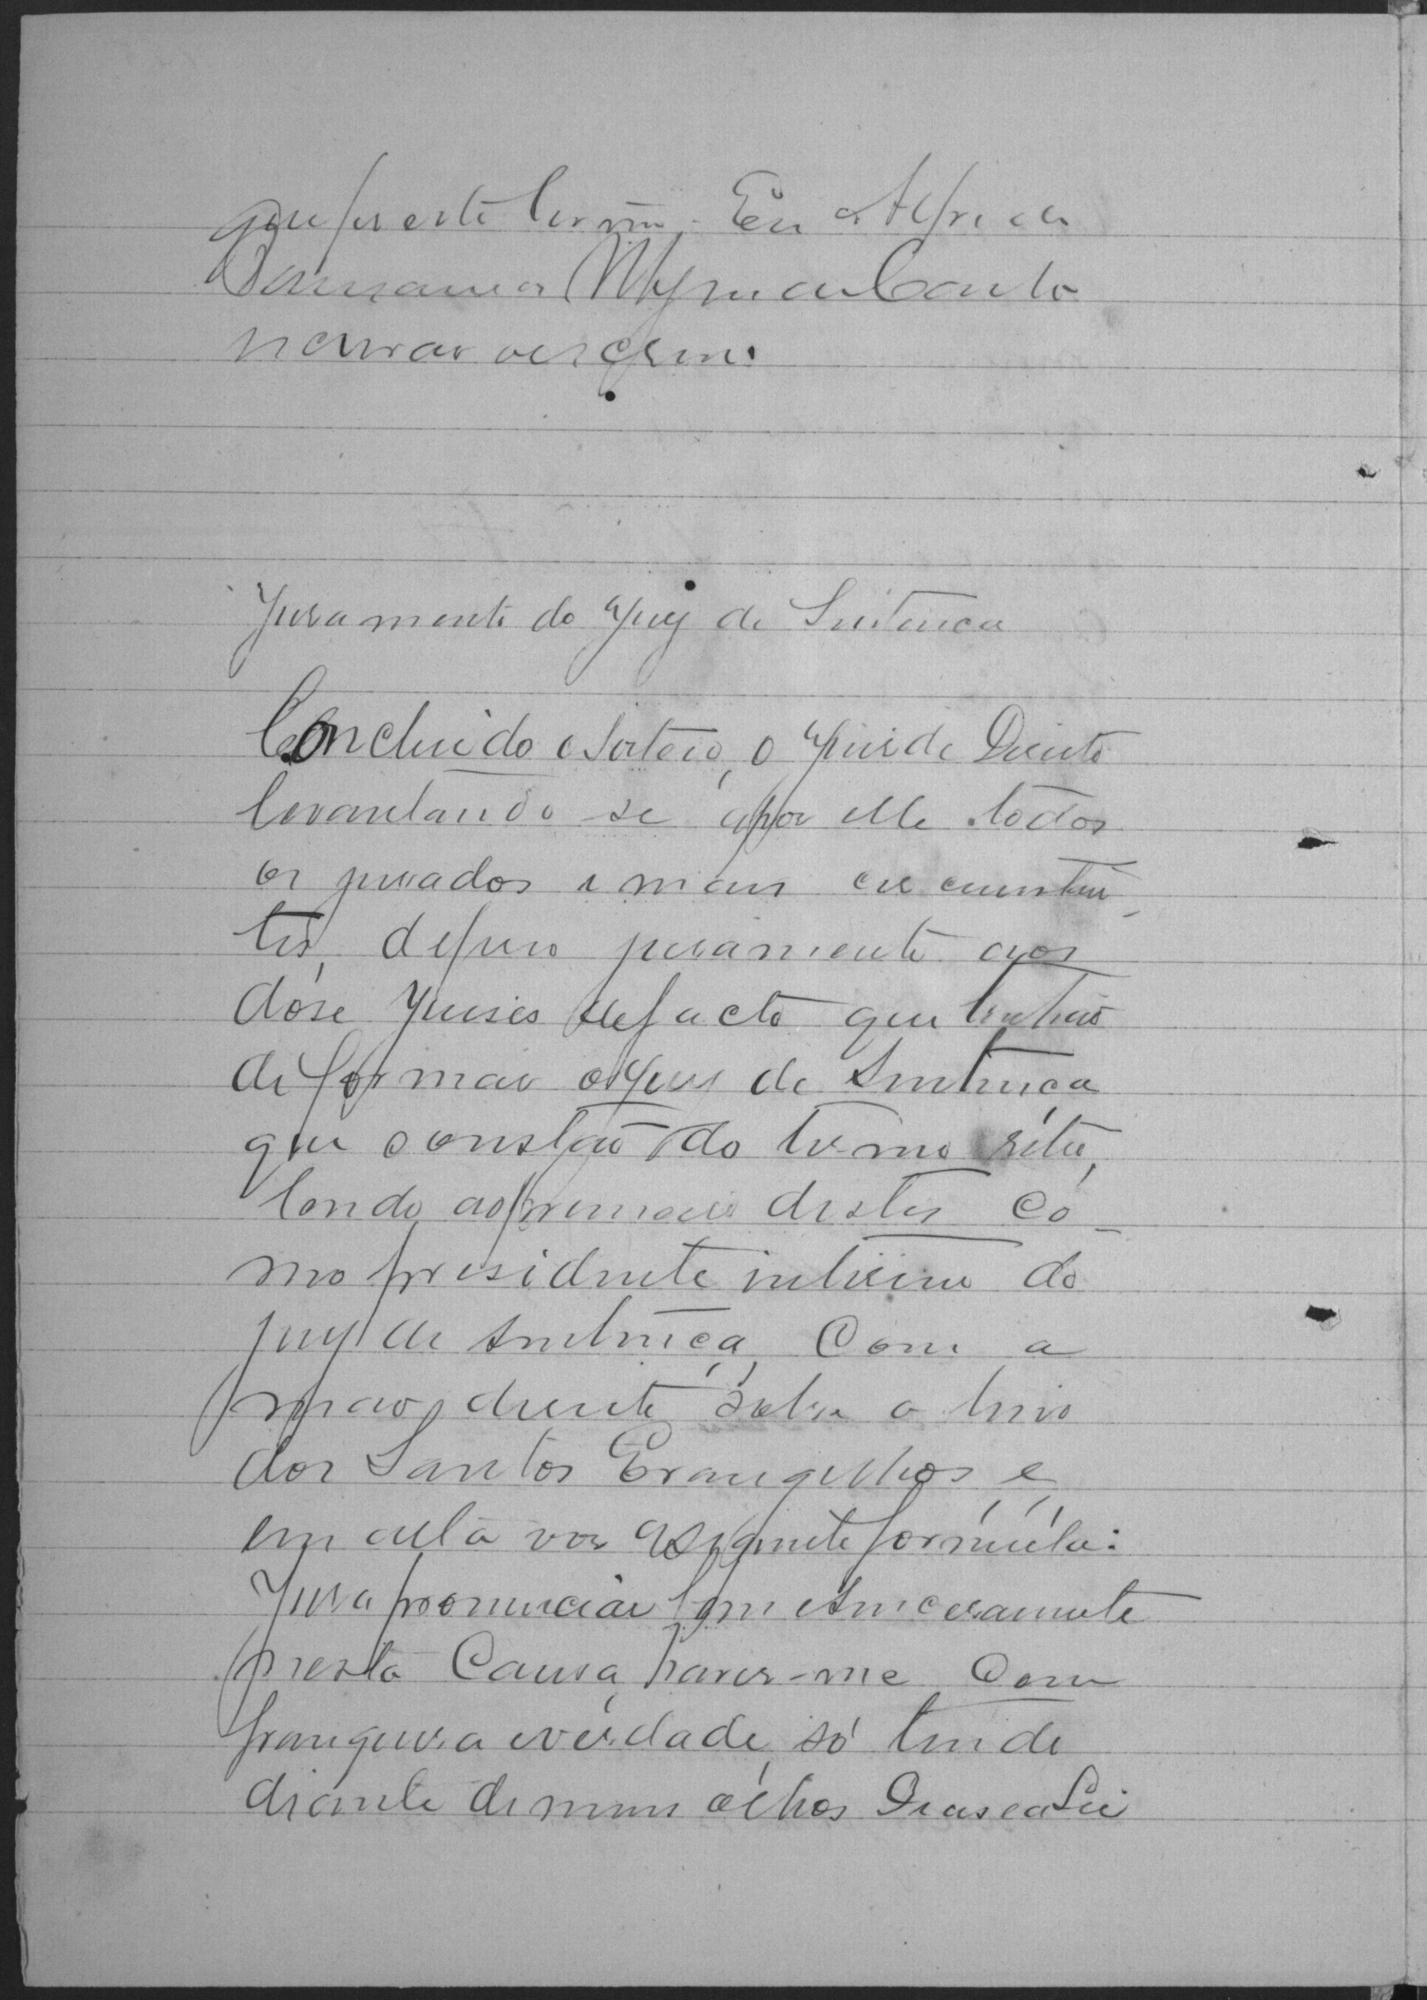 que fiz este termo. Eu Alfredo
escrivão o escrevi.
Juramento do Jury de Sentença
Concluido o sorteio, o Juiz de Direito
levantando se após elle todos
os jurados e mais circunstan-
tes, deferio juramento aos
dose Juises de facto que tinhão
de formar o Jury de Sentença
que constão do termo retro,
tendo ao primeiro destes co-
mo presidente interino do
jury de sentença, com a
mão direita sobre o livro
dos Santos Evangelhos e
em alta vos a seguinte formúla:
Juro pronunciar bem e sinceramente
nesta causa, haver-me com
franquesa e verdade, só tendo
diante de meus olhos Deus e a Lei